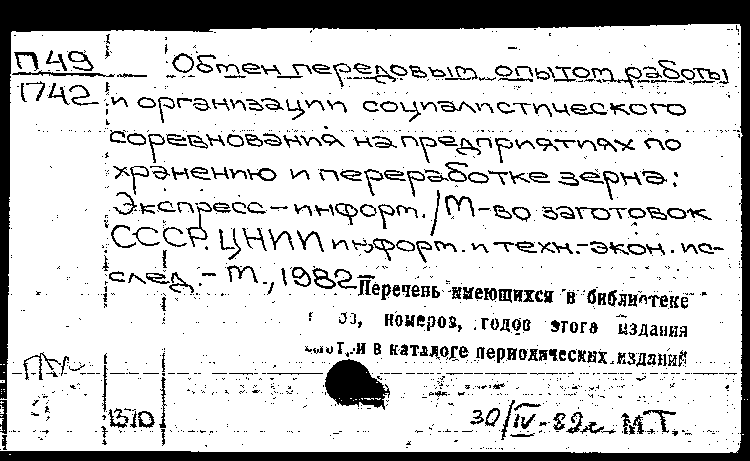 П49 Обмен передовым опытом работы
1742 и организации социалистического
соревнования на предприятиях по
хранению и переработке зерна:
Экспресс-информ. / М-во заготовок
СССР. ЦНИИ информ. и техн.-экон. ис-
след. - М., 1982-
Перечень имеющихся в библиотеке
номеров, годов этого издания
и в каталоге периодических изданий
1370
30/IV-82г. М.Т.